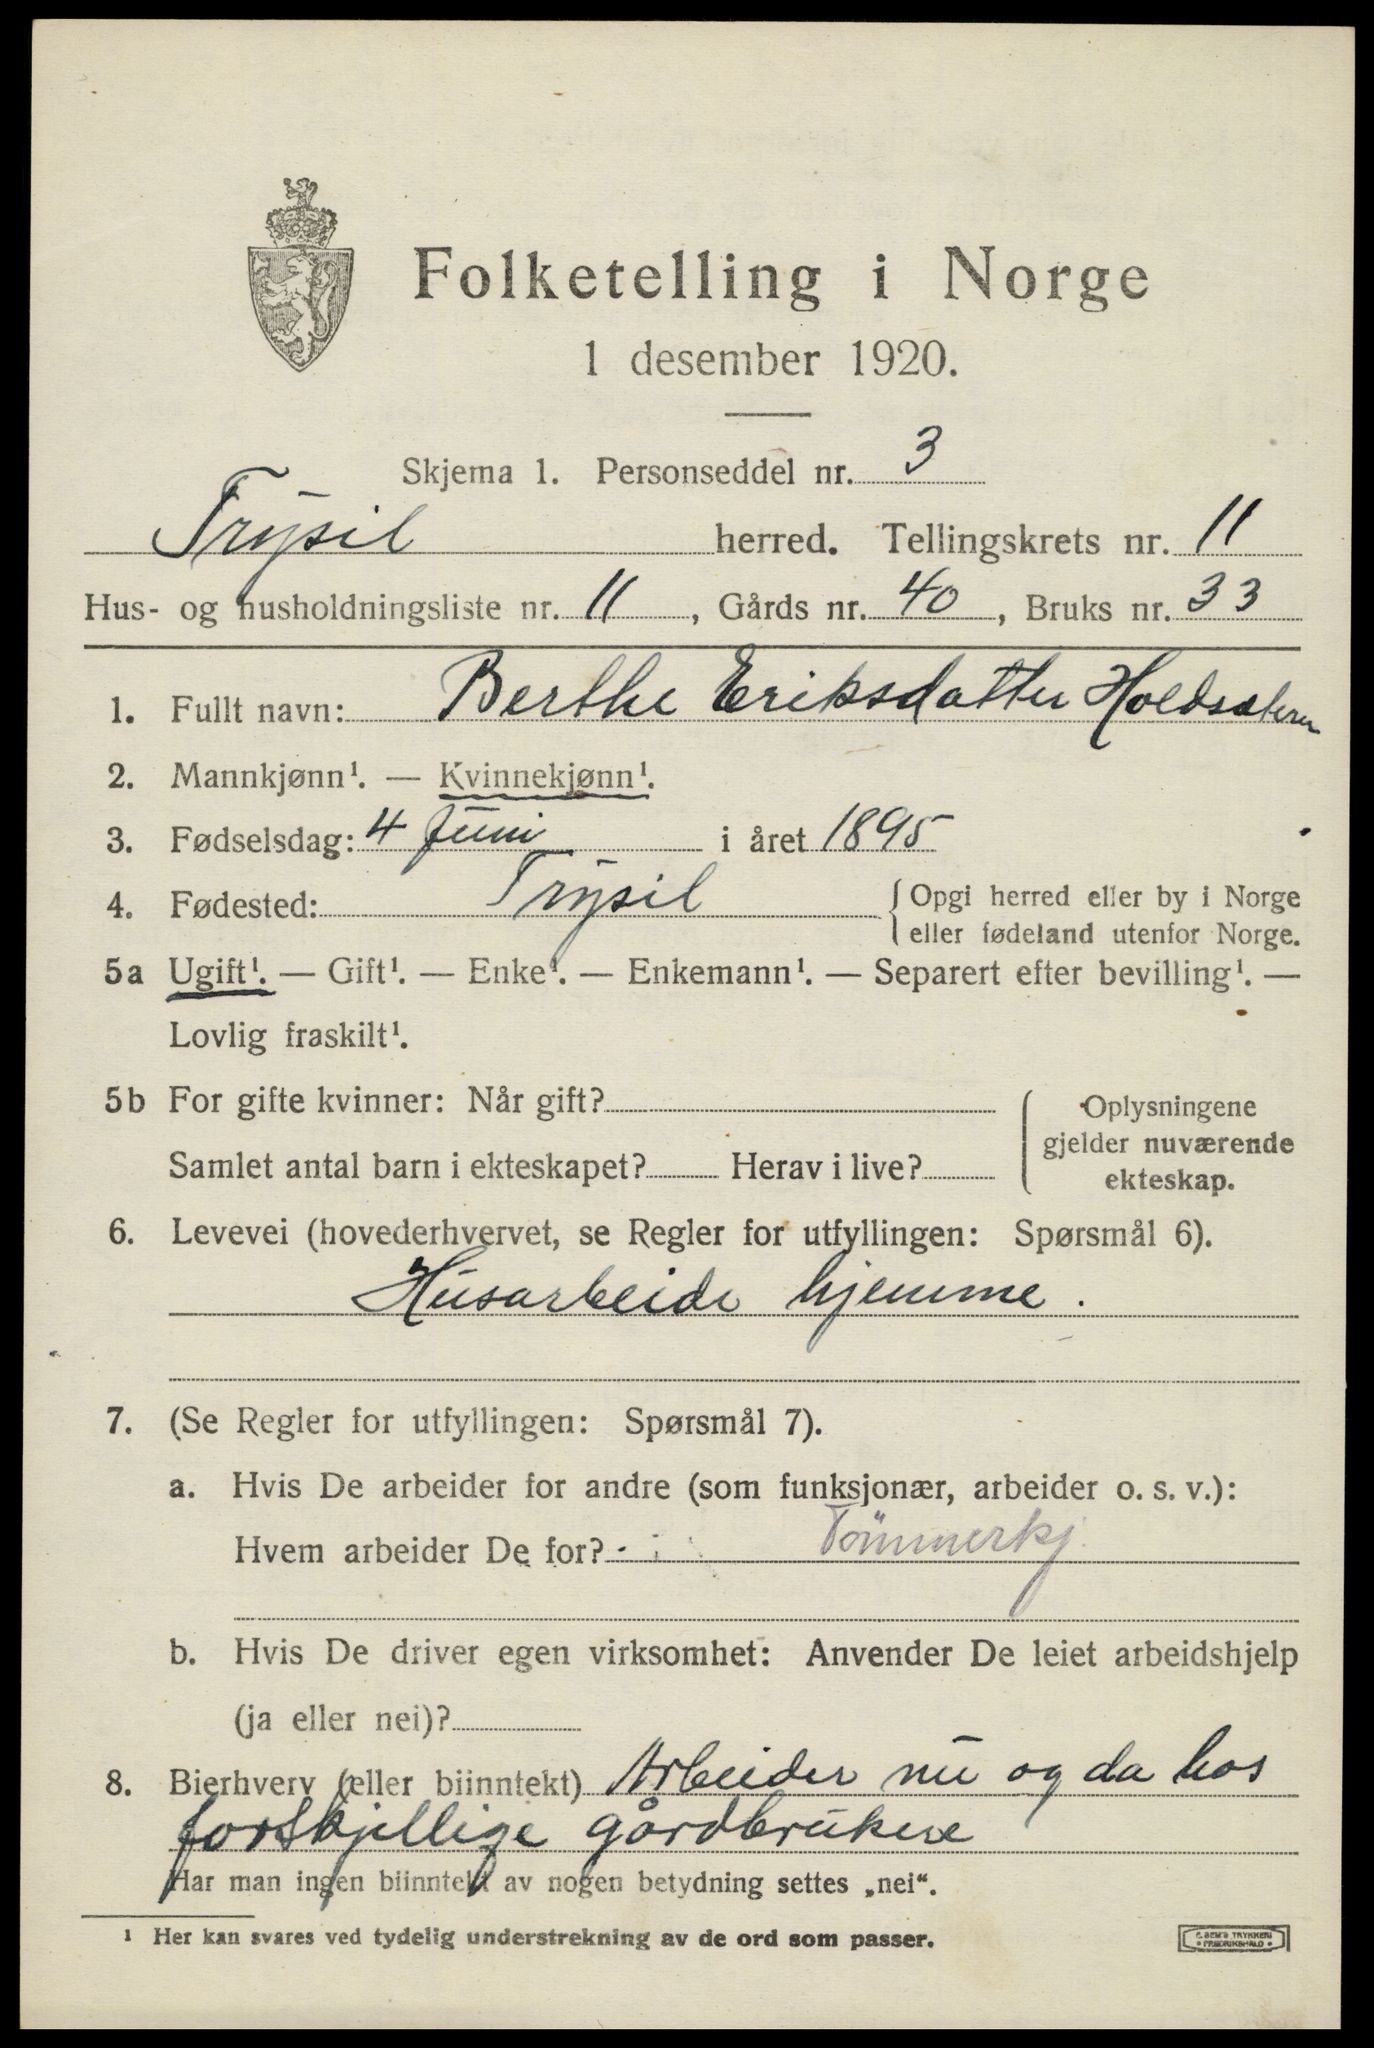 Folketelling i Norge
1 desember 1920.
Skjema 1. Personseddel nr. 3
Trysil herred. Tellingskrets nr. 11
Hus- og husholdningsliste nr. 11, Gårds nr. 40, Bruks nr. 33
1. Fullt navn: Berthe Eriksdatter Holdsæteren
2. Mannkjønn¹. — Kvinnekjønn¹.
3. Fødselsdag: 4 juni i året 1895
4. Fødested: Trysil { Opgi herred eller by i Norge
eller fødeland utenfor Norge.
5a Ugift¹. — Gift¹. — Enke¹. — Enkemann¹. — Separert efter bevilling¹. —
Lovlig fraskilt¹.
5b For gifte kvinner: Når gift?
Samlet antal barn i ekteskapet? Herav i live?
Oplysningene
gjelder nuværende
ekteskap.
6. Levevei (hovederhvervet, se Regler for utfyllingen: Spørsmål 6).
Husarbeide hjemme.
7. (Se Regler for utfyllingen: Spørsmål 7).
a. Hvis De arbeider for andre (som funksjonær, arbeider o. s. v.):
Hvem arbeider De for? Tömmerkj.
b. Hvis De driver egen virksomhet: Anvender De leiet arbeidshjelp
(ja eller nei)?
8. Bierhverv (eller biinntekt) Arbeider nu og da hos
forskjellige gårdbrukere
Har man ingen biinntekt av nogen betydning settes „nei“.
¹ Her kan svares ved tydelig understrekning av de ord som passer.
C. SEM'S TRYKKERI
• FREDRIKSHALD •